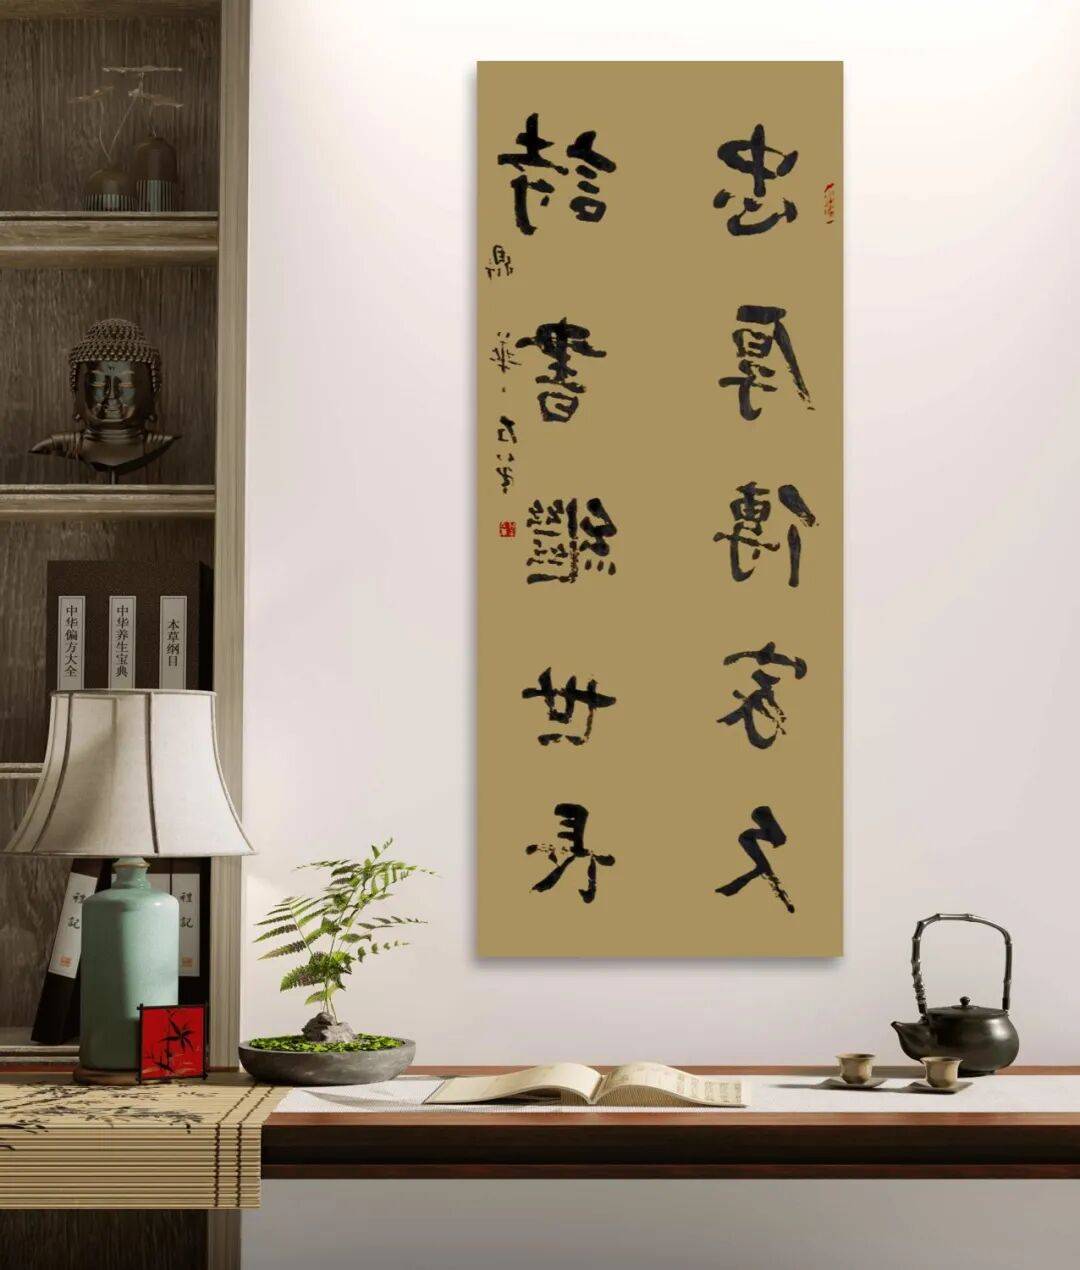 忠厚傳家久
詩書繼世長
中华偏方大全
中华养生宝典
本草纲目
禮記
禮記